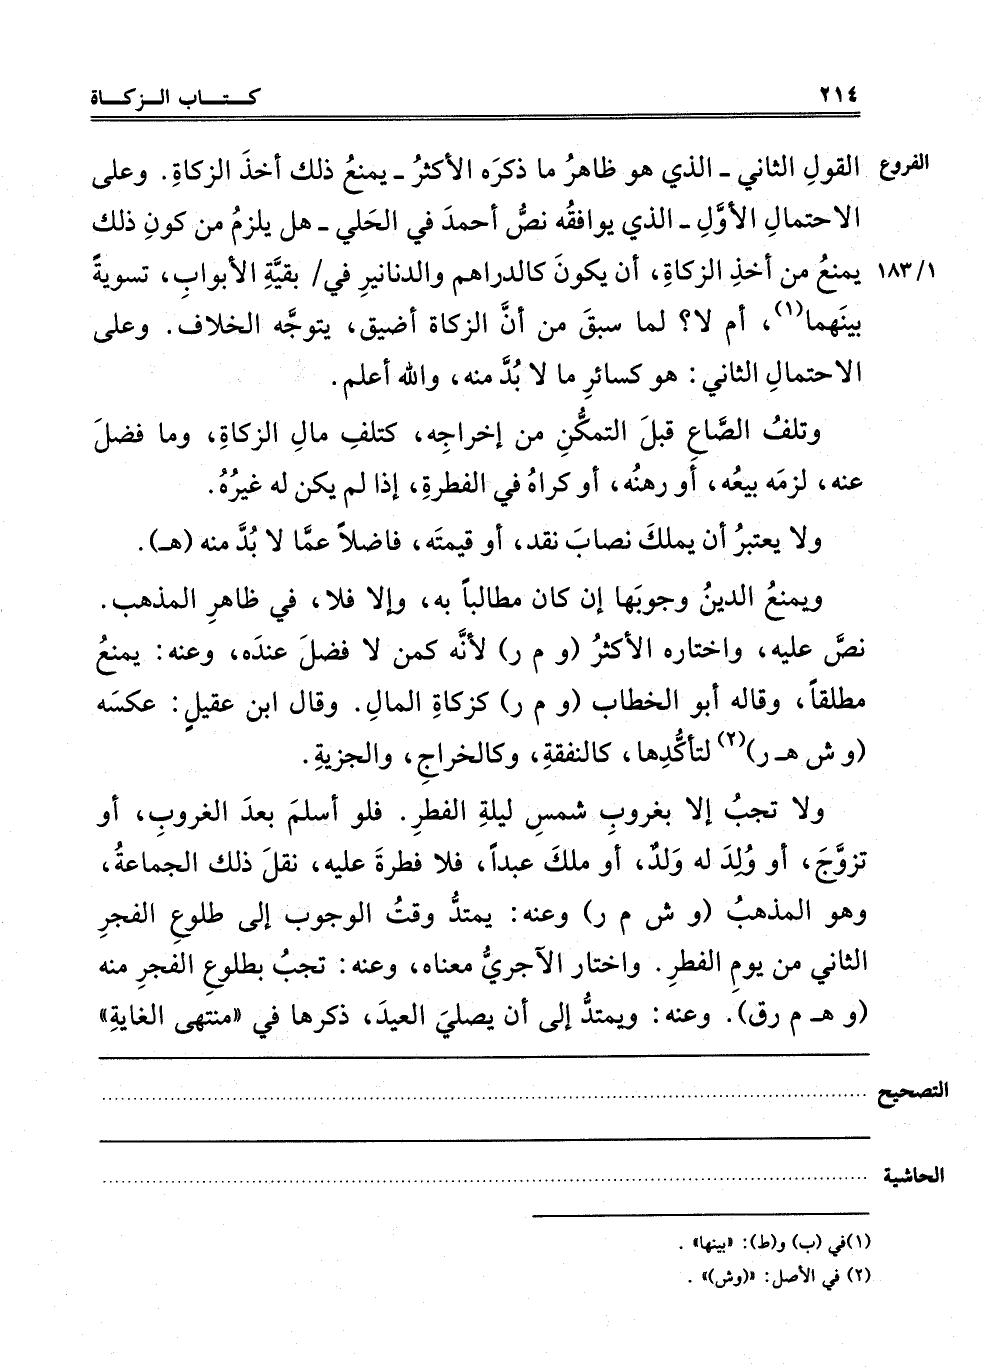 ٢١٤ كـتـــاب الـزكـــاة
الفروع القولِ الثاني ـ الذي هو ظاهرُ ما ذكرَه الأكثرُ ـ يمنعُ ذلك أخذَ الزكاةِ. وعلى
الاحتمالِ الأوَّلِ ـ الذي يوافقُه نصُّ أحمدَ في الحَلي ـ هل يلزمُ من كونِ ذلك
١٨٣/١ يمنعُ من أخذِ الزكاةِ، أن يكونَ كالدراهم والدنانيرِ في/ بقيَّةِ الأبوابِ، تسويةً
بينَهما(١)، أم لا؟ لما سبقَ من أنَّ الزكاة أضيق، يتوجَّه الخلاف. وعلى
الاحتمالِ الثاني: هو كسائرِ ما لا بُدَّ منه، والله أعلم.
وتلفُ الصَّاعِ قبلَ التمكُّنِ من إخراجِه، كتلفِ مالِ الزكاةِ، وما فضلَ
عنه، لزمَه بيعُه، أو رهنُه، أو كراهُ في الفطرةِ، إذا لم يكن له غيرُهُ.
ولا يعتبرُ أن يملكَ نصابَ نقد، أو قيمتَه، فاضلاً عمَّا لا بُدَّ منه (هـ).
ويمنعُ الدينُ وجوبَها إن كان مطالباً به، وإلا فلا، في ظاهرِ المذهب.
نصَّ عليه، واختاره الأكثرُ (و م ر) لأنَّه كمن لا فضلَ عندَه، وعنه: يمنعُ
مطلقاً، وقاله أبو الخطاب (و م ر) كزكاةِ المالِ. وقال ابن عقيلٍ: عكسَه
(و ش هـ ر)(٢) لتأكُّدِها، كالنفقةِ، وكالخراجِ، والجزيةِ.
ولا تجبُ إلا بغروبِ شمسِ ليلةِ الفطرِ. فلو أسلمَ بعدَ الغروبِ، أو
تزوَّجَ، أو وُلِدَ له وَلدٌ، أو ملكَ عبداً، فلا فطرةَ عليه، نقلَ ذلك الجماعةُ،
وهو المذهبُ (و ش م ر) وعنه: يمتدُّ وقتُ الوجوب إلى طلوعِ الفجرِ
الثاني من يومِ الفطرِ. واختار الآجريُّ معناه، وعنه: تجبُ بطلوعِ الفجرِ منه
(و هـ م رق). وعنه: ويمتدُّ إلى أن يصليَ العيدَ، ذكرها في «منتهى الغايةِ»
التصحيح
الحاشية
(١)في (ب) و(ط): «بينها».
(٢) في الأصل: «(وش)».